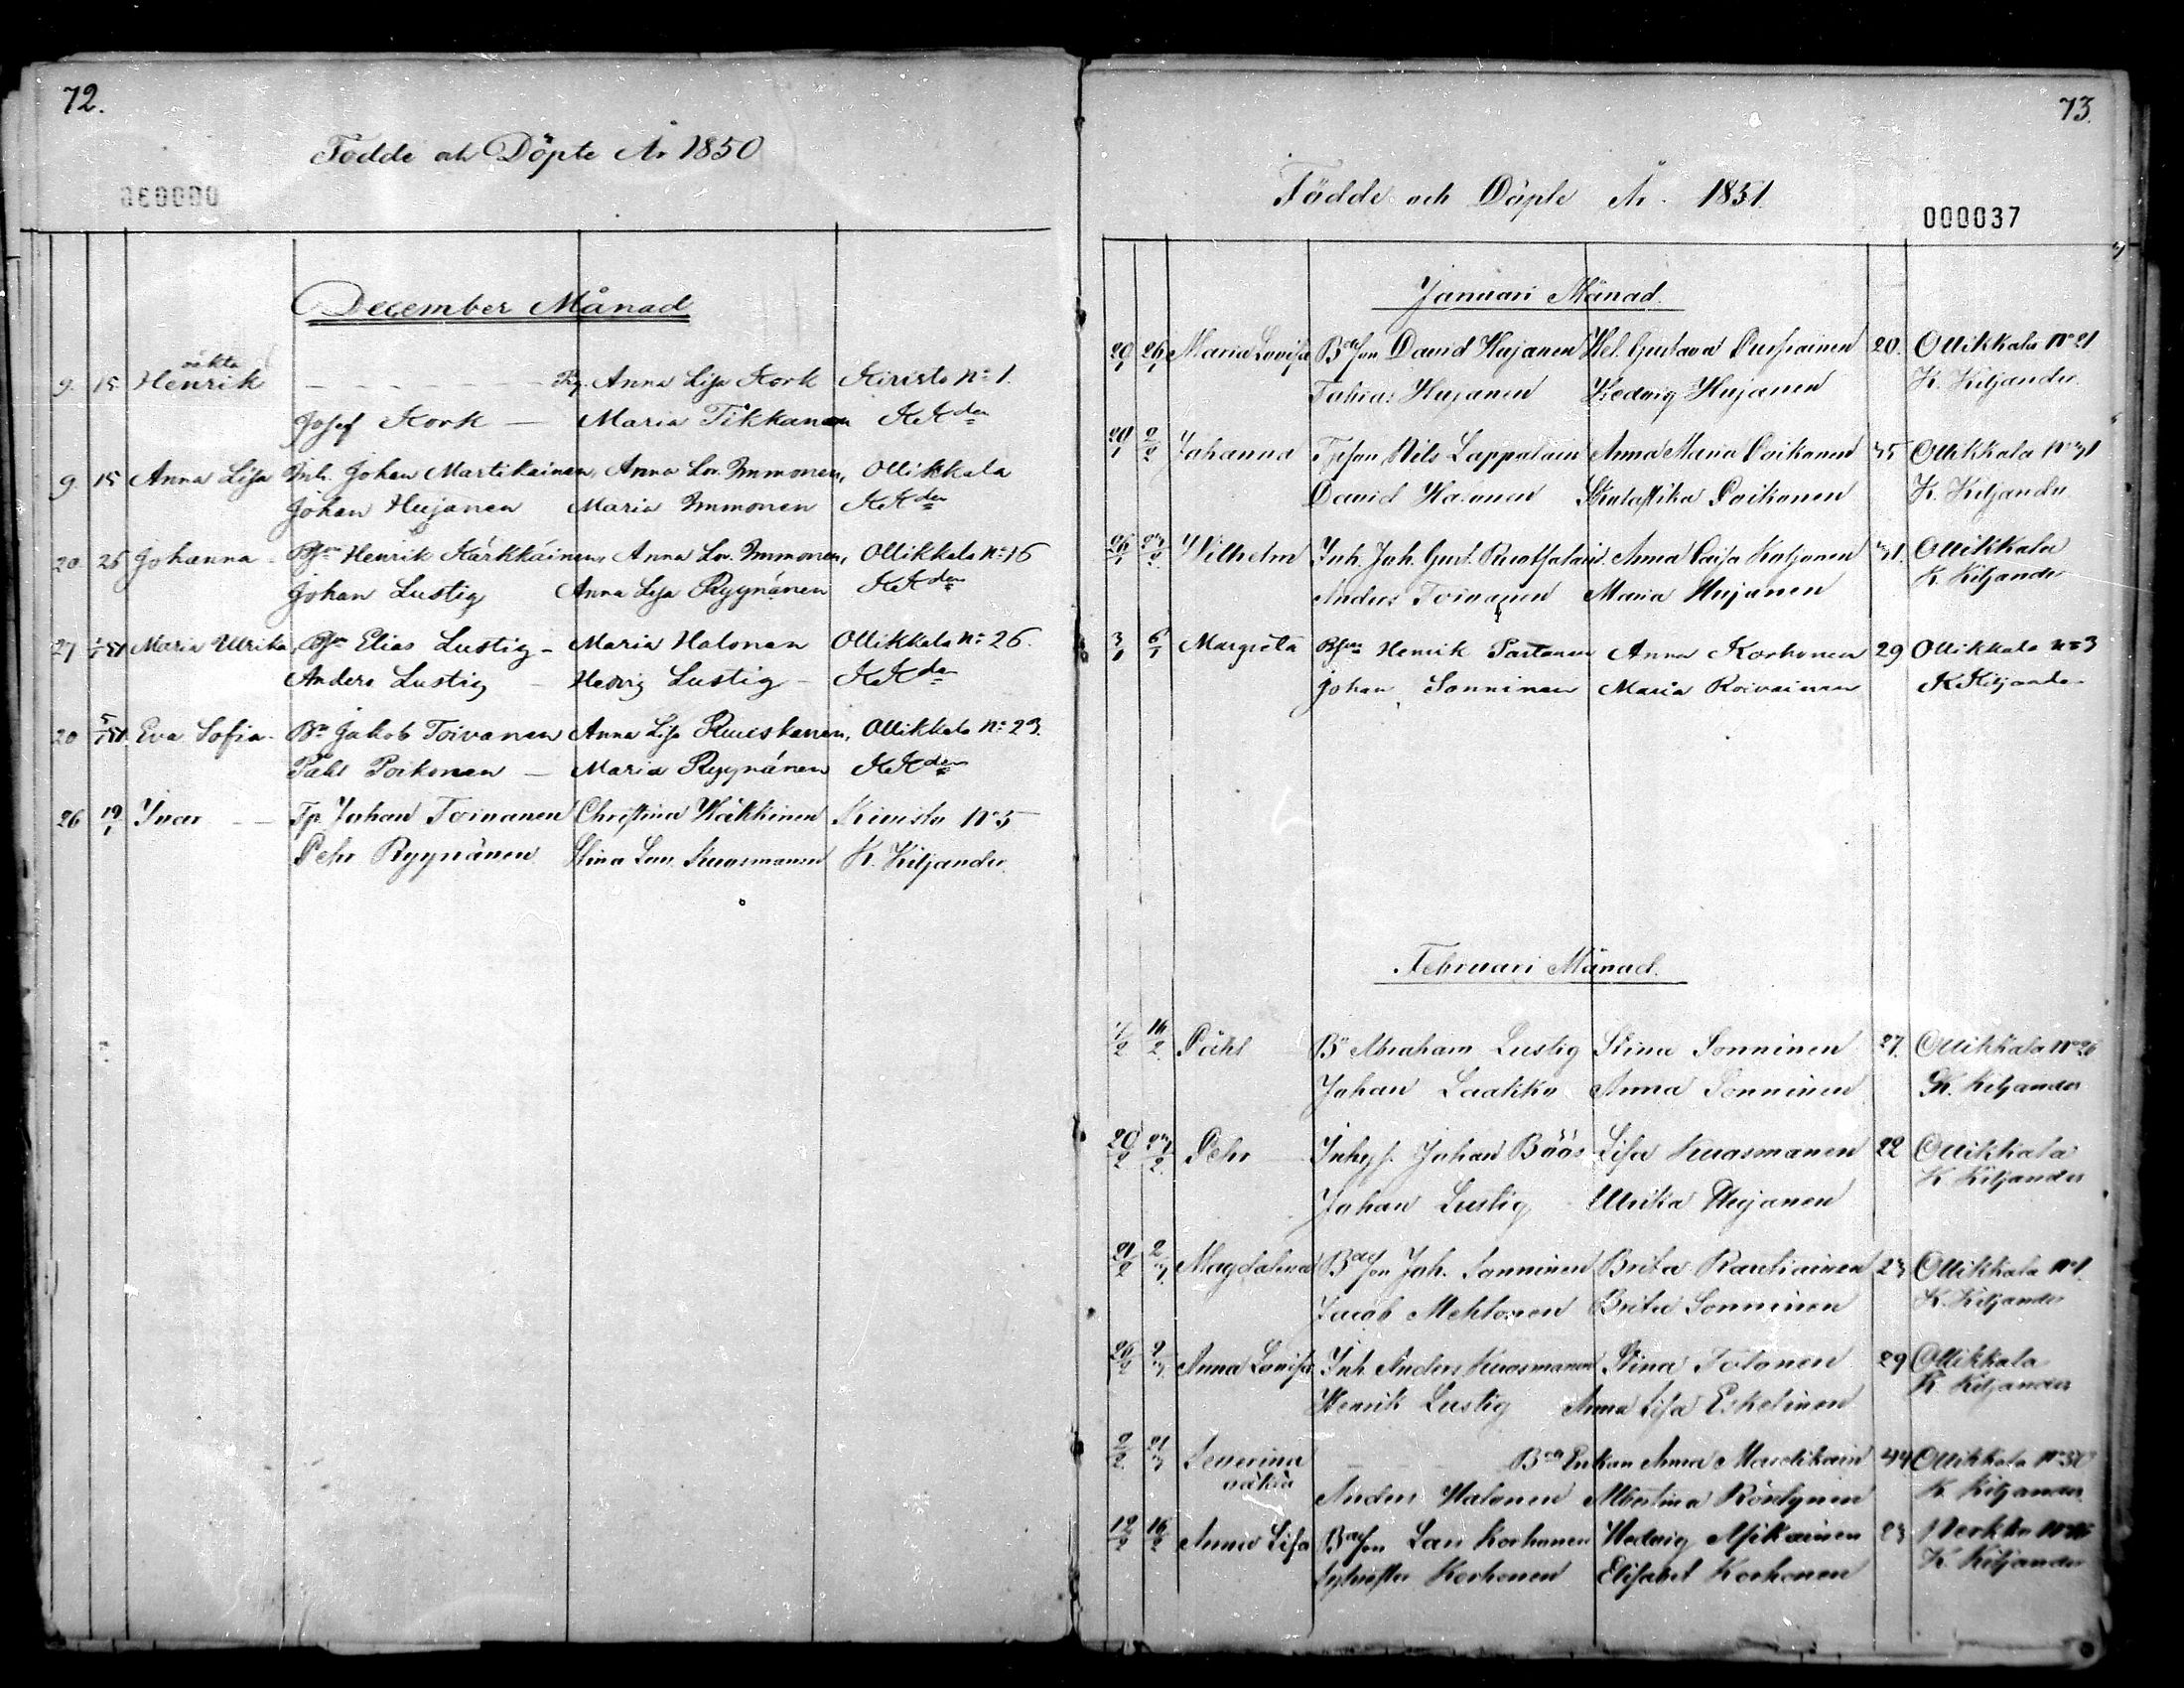 72.
Födde och Döpte År 1850
000036
December Månad
oäkta
9. 15. Henrik - - - - - - Pig. Anna Lisa Kork Kivisto No 1.
Josef Kork — Maria Tikkanen KKden
9. 15 Anna Lisa Inh. Johan Martikainen, Anna Lov. Immonen, Ollikkala
Johan Hujanen Maria Immonen KKden
20. 26 Johanna - Bson Henrik Kärkkäinen, Anna Lov. Immonen, Ollikkala No 16
Johan Lustig Anna Lisa Ryynänen KKden
27 1/1 51 Maria Ulrika, Bson Elias Lustig - Maria Halonen Ollikkala No 26.
Anders Lustig - Hedvig Lustig - KKden
20 5/1 51. Eva Sofia - Bn Jakob Toivanen Anna Lisa Ruuskanen, Ollikkala No 23.
Påhl Poikonen — Maria Ryynänen KKden
26 19/1 Ivar - - Tp. Johan Toivanen Christina Häkkinen Kivisto No 5
Pehr Ryynänen Stina Lov. Kuosmanen K. Kiljander.
73.
Födde och Döpte År 1851.
000037
Januari Månad.
20/1 26/1 Maria Lovisa Bdeson David Hujanen Hel. Gustava 20. Ollikkala No 21
Tahvas Hujanen Hedvig Hujanen K. Kiljander.
20/1 2/2 Johanna Tpson Nils Lappalain Anna Maria Poikonen 35 Ollikkala No 31
David Halonen Skolastika Poikonen K. Kiljander
26/1 Wilhelm Inh. Joh. Gust. Ruotsalain Anna Caisa Kaljonen 31. Ollikkala
Anders Toivanen Maria Hujanen K. Kiljander
3/1 6/1 Margreta Bson Henrik Partanen Anna Korhonen 29 Ollikkala No 3
Johan Sonninen Maria Roivainen K Kiljander
Februari Månad.
16/2 Påhl Bn Abraham Lustig Stina Sonninen 27. Ollikkala No 26
Johan Laakko Anna Sonninen K. Kiljander
20/2 23/2 Pehr Inhys. Johan Böös Lisa Kuosmanen 22 Ollikkala
Johan Lustig Ulrika Hujanen K. Kiljander
21/2 2/3 Magdalena Bdeson Joh. Sonninen Brita Rautiainen 23 Ollikkala No 1.
Jacob Mehtonen Brita Sonninen K. Kiljander
26/2 2/3 Anna Lovisa Inh. Anders Kuosmanen Stina Tolonen 29 Ollikkala
Henrik Lustig Anna Lisa Eskelinen K. Kiljander
2/2 21/3 Severina - - - - Enkan Anna Martikain 44 Ollikkala No 30
oäkta Anders Halonen Albertina K. Kiljander
12/2 16/2 Anna Lisa Bdeson Lars Korhonen Hedvig Asikainen 23
Sylvester Korhonen Elisabet Korhonen K. Kiljander